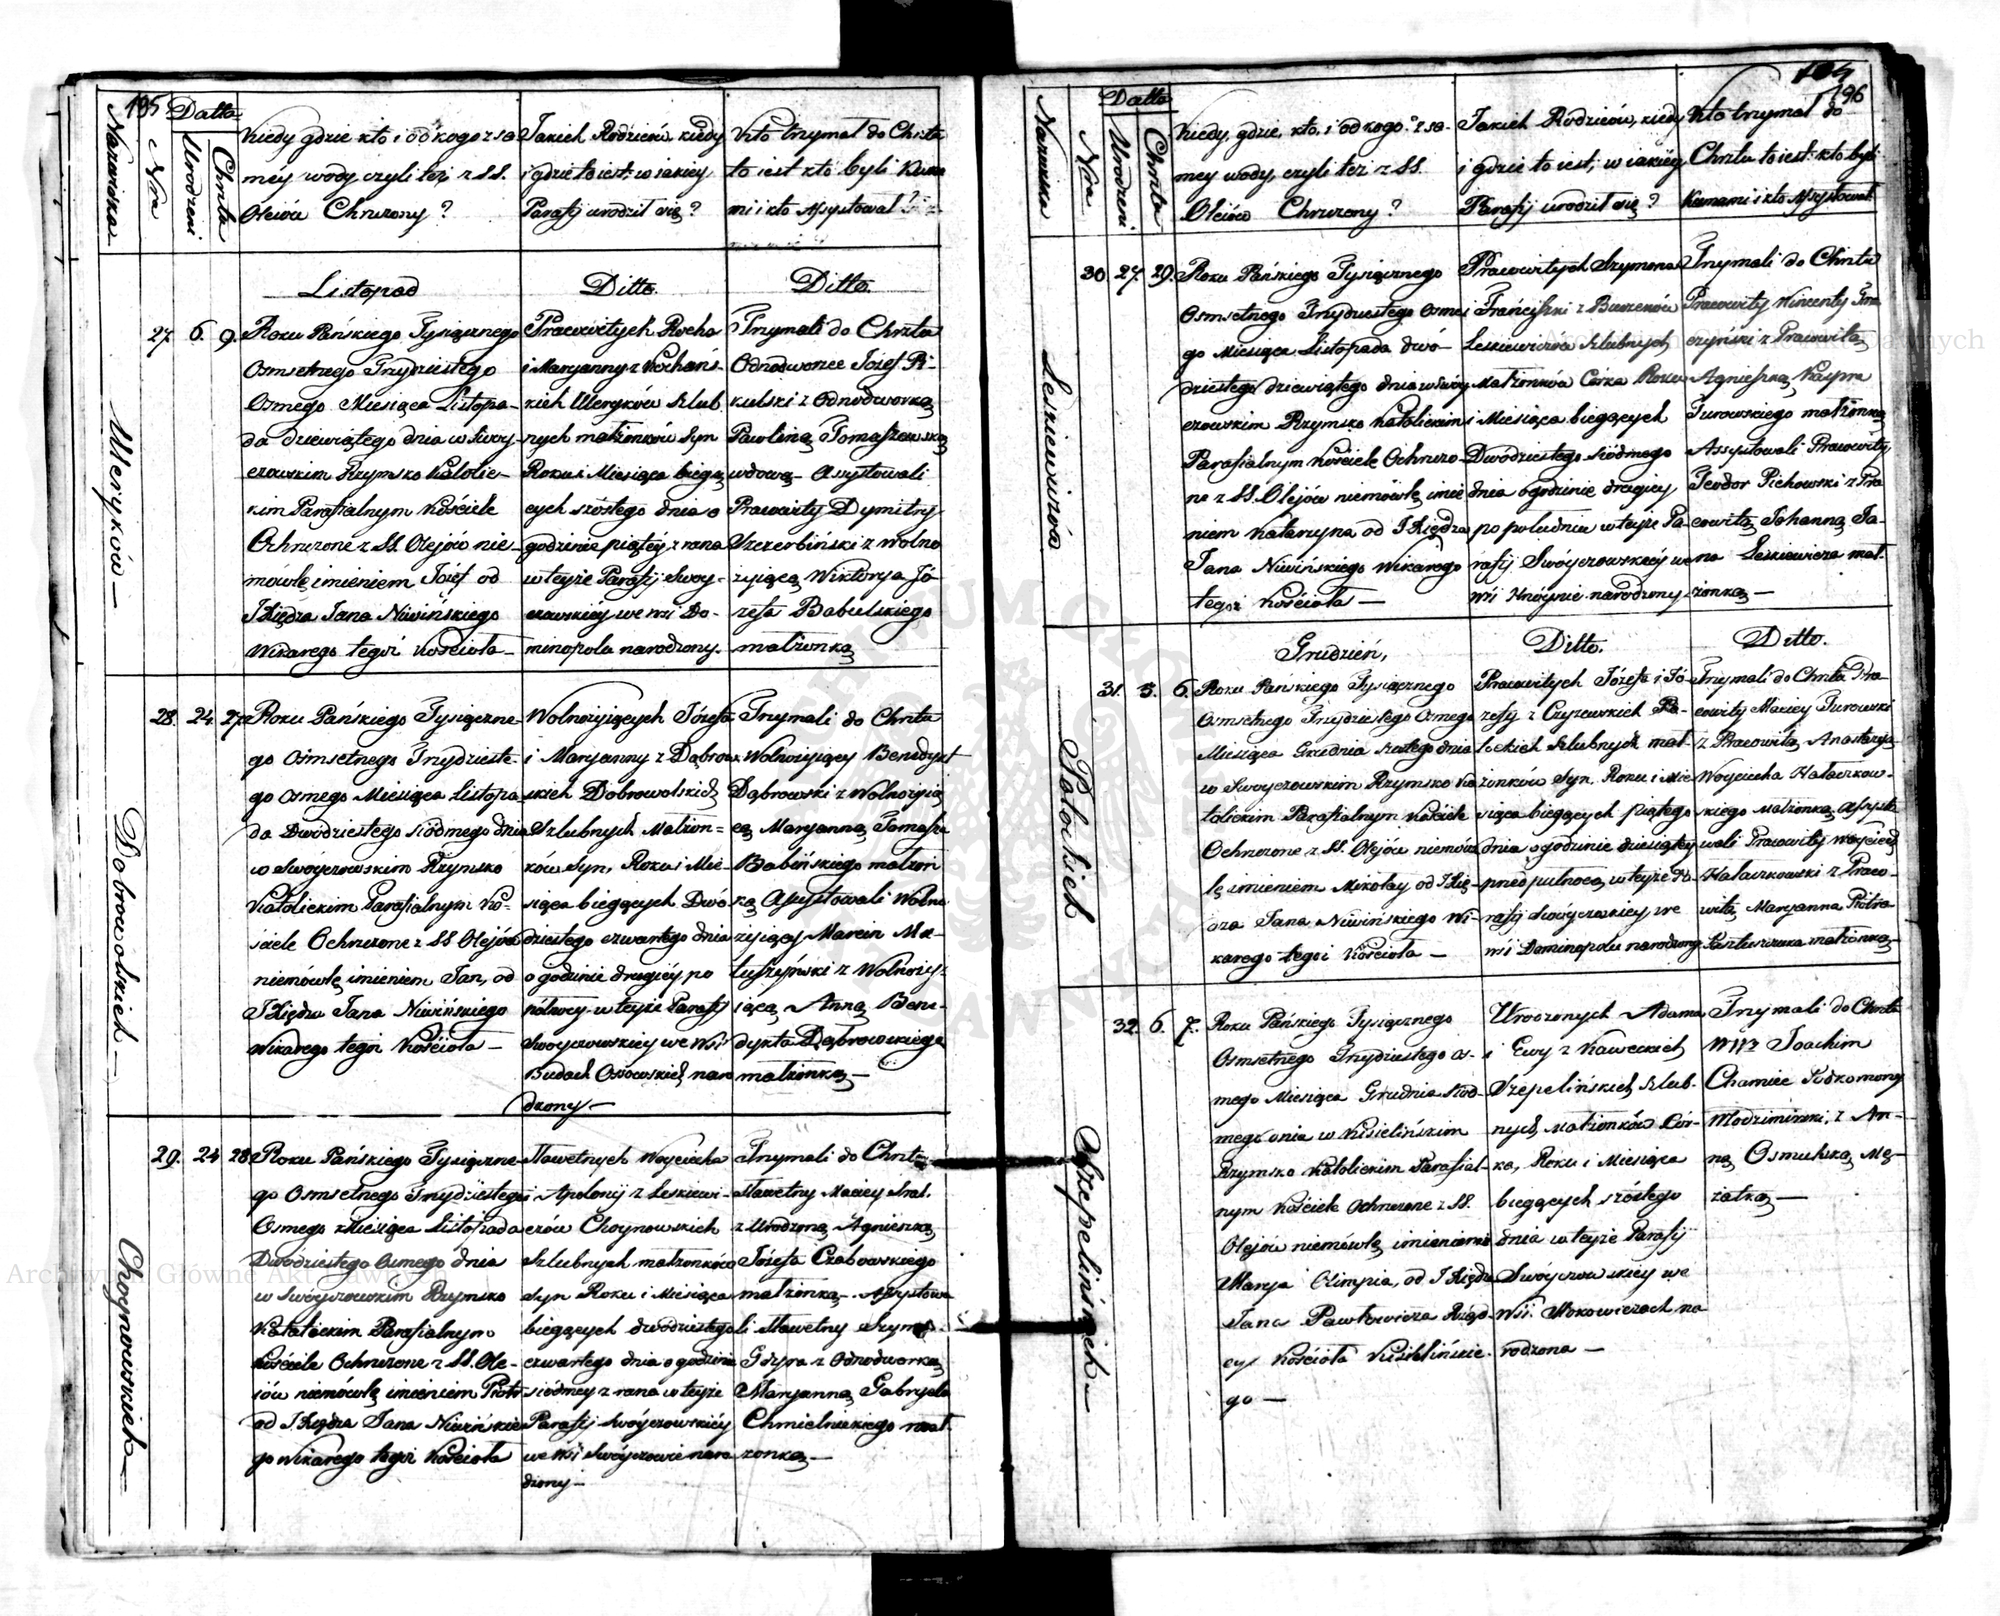 195
Datta
Nazwiska
Nra
Urodzeni
Chrztu
Kiedy gdzie kto i od kogo z sa
mey wody czyli też z SS.
Olejów Chrzczony?
Jakich Rodziców, kiedy
i gdzie to iest w iakiey
Parafij urodził się?
Kto trzymał do Chrztu
to iest kto byli Kuma
mi i kto Asystował?
Listopad
Ditto.
Ditto.
Uleryków —
27. 6. 9.
Roku Pańskiego Tysiącznego
Osmsetnego Trzydziestego
Osmego Miesiąca Listopa-
da dziewiątego dnia w Swoy-
czowskim Rzymsko Katolic-
kim Parafialnym Kościele
Ochrzczone z SS. Olejów nie-
mówlę imieniem Józef od
JXiędza Jana Niwińskiego
Wikarego tegoż Kościoła —
Pracowitych Rocha
i Maryanny z Kochańs-
kich Uleryków Szlub
nych małżonków Syn
Roku i Miesiąca bieżą
cych szóstego dnia o
godzinie piątéj z rana
w teyże Parafij Swoy-
czowskiéy we wsi Do-
minopolu narodzony.
Trzymali do Chrztu
Odnodworzec Józef Pi-
kulski z Odnodworką
Pawliną Tomaszewską
wdową — Asystowali
Pracowity Dymitry
Szczerbiński z wolno
żyiącą Wiktorya Jó
zefa Babulskiego
małżonką
Dobrowolskich —
28. 24. 27.
Roku Pańskiego Tysiączne-
go Osmsetnego Trzydzieste-
go Osmego Miesiąca Listopa-
da Dwódziestego siódmego dnia
w Swóyczowskim Rzymsko
Katolickim Parafialnym Ko-
ściele Ochrzczone z SS Olejów
niemówlę imieniem Jan, od
JXiędza Jana Niwińskiego
Wikarego tegoż Kościoła —
Wolnożyiących Józefa
i Maryanny z Dąbrow
skich Dobrowolskich
Szlubnych Małżon-
ków Syn, Roku i Mie-
siąca bieżących Dwó-
dziestego czwartego dnia
o godzinie drugiéy po
północy w teyże Parafij
Swoyczowskiey we wsi
Budach Ossowskich naro
dzony —
Trzymali do Chrztu
Wolnożyiący Benedykt
Dąbrowski z Wolnożyią
cą Maryanną Tomasza
Babińskiego małżon
ką Asystowali Wolno
żyiący Marcin Ma-
tuszyński z Wolnoży-
iącą Anną Bene-
dykta Dąbrowskiego
małżonką —
Choynowskich —
29. 24 28.
Roku Pańskiego Tysiączne-
go Osmsetnego Trzydziestego
Osmego Miesiąca Listopada
Dwódziestego Osmego dnia
w Swóyczowskim Rzymsko
Katolickim Parafialnym
Kościele Ochrzczone z SS. Ole-
jów niemówlę imieniem Piotr
od JXiędza Jana Niwińskie
go Wikarego tegoż Kościoła
Sławetnych Woyciecha
i Apolonij z Leskiewi-
czów Choynowskich
Szlubnych małżonków
Syn Roku i Miesiąca
bieżących dwódziestego
czwartego dnia o godzinie
siódmey z rana w teyże
Parafij Swóyczowskiéy
we wsi Swóyczowie naro
dzony —
Trzymali do Chrztu
Sławetny Maciey
z Urodzoną Agnieszką
Józefa Czabowskiego
małżonką — Asystowa
li Sławetny Szym
z Odnodworką
Maryanną Gabryela
Chmielnickiego mał
żonką —
196
Datta
Nazwiska
Nra
Urodzeni
Chrztu
Kiedy, gdzie, kto, i od kogo? z sa-
mey wody, czyli też z SS.
Olejów Chrzczony?
Jakich Rodziców, kiedy
i gdzie to iest, w iakiéy
Parafij urodził się?
Kto trzymał do
Chrztu to iest: kto byli
Kumami i kto Asystował
Leskiewiczów
30 27. 29.
Roku Pańskiego Tysiącznego
Osmsetnego Trzydziestego Osme
go Miesiąca Listopada dwó-
dziestego dziewiątego dnia w Swóy
czowskim Rzymsko Katolickim
Parafialnym Kościele Ochrzczo-
ne z SS. Olejów niemówlę imie
niem Katarzyna od JXiędza
Jana Niwińskiego Wikarego
tegoż Kościoła —
Pracowitych Szymona
i Franciszki z Buczenów
Leskiewiczów Szlubnych
Małżonków Córka Roku
i Miesiąca bieżących
Dwódziestego siódmego
dnia o godzinie drugiey
po południu w teyże Pa-
rafij Swóyczowskiéy we
wsi Hnóynie narodzony
Trzymali do Chrztu
Pracowity Wincenty
z Pracowitą
Agnieszką Kaspra
Turowskiego małżonką
Assystowali Pracowity
Teodor Pichowski z Pra
cowitą Johanną Ja-
na Leskiewicza mał-
żonką —
Grudzień,
Ditto.
Ditto.
Połockich
31. 5. 6.
Roku Pańskiego Tysiącznego
Osmsetnego Trzydziestego Osmego
Miesiąca Grudnia szóstego dnia
w Swoyczowskim Rzymsko Ka
tolickim Parafialnym Kościele
Ochrzczone z SS. Olejów niemów
lę imieniem Mikołay od JXię-
dza Jana Niwińskiego Wi-
karego tegoż Kościoła —
Pracowitych Józefa i Jó-
zefy z Czyżewskich Po-
łockich Szlubnych mał-
żonków Syn. Roku i Mie
siąca bieżących piątego
dnia o godzinie dziesiątey
przed pułnocą, w teyże Pa-
rafij Swóyczowskiey, we
wsi Dominopolu narodzony
Trzymali do Chrztu Pra-
cowity Maciey Turowski
z Pracowitą Anastazyą
Woyciecha Hałaczkow-
skiego małżonką Assysto
wali Pracowity Woyciech
Hałaczkowski z Praco-
witą Maryanną Piotra
małżonką —
Szepelińskich —
32. 6. 7.
Roku Pańskiego Tysiącznego
Osmsetnego Trzydziestego Os-
mego Miesiąca Grudnia siód-
mego dnia w Kisielińskim
Rzymsko Katolickim Parafial-
nym Kościele Ochrzczone z SS.
Olejów niemówlę imionami
Marya Olimpia, od JXiędza
Jana Pawłowicza Rząd-
cy Kościoła Kisielińskie-
go —
Urodzonych Adama
i Ewy z Kaweckich
Szepelińskich Szlub-
nych Małżonków Cór-
ka, Roku i Miesiąca
bieżących szóstego
dnia w teyże Parafij
Swóyczowskiey we
wsi Mokowiczach na
rodzona —
Trzymali do Chrztu
WWż Joachim
Chamiec Podkomorzy
Włodzimirski, z An-
ną Osmulską Mę-
żatką —
Archiwum Główne Akt Dawnych
Archiwum Główne Akt Dawnych